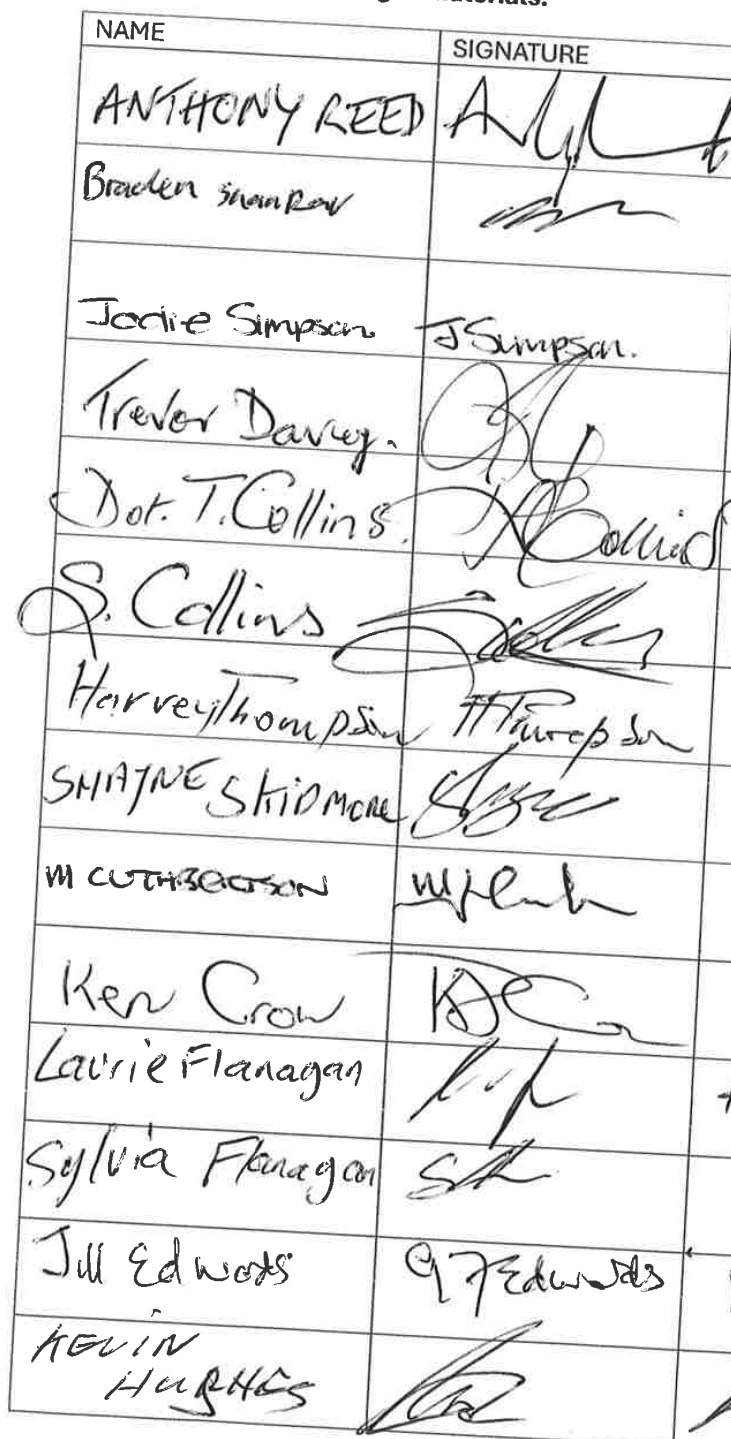 materials.
NAME SIGNATURE
ANTHONY REED
Braden
Jodie Simpson J Simpson.
Trevor Davey.
Dot. T. Collins. Collins
S. Collins
Harvey Thompson H Thompson
SHAYNE SKIDMORE
M CUTHBERTSON
Ken Crow
Laurie Flanagan
Sylvia Flanagan
Jill Edwards G F Edwards
KEVIN
HUGHES